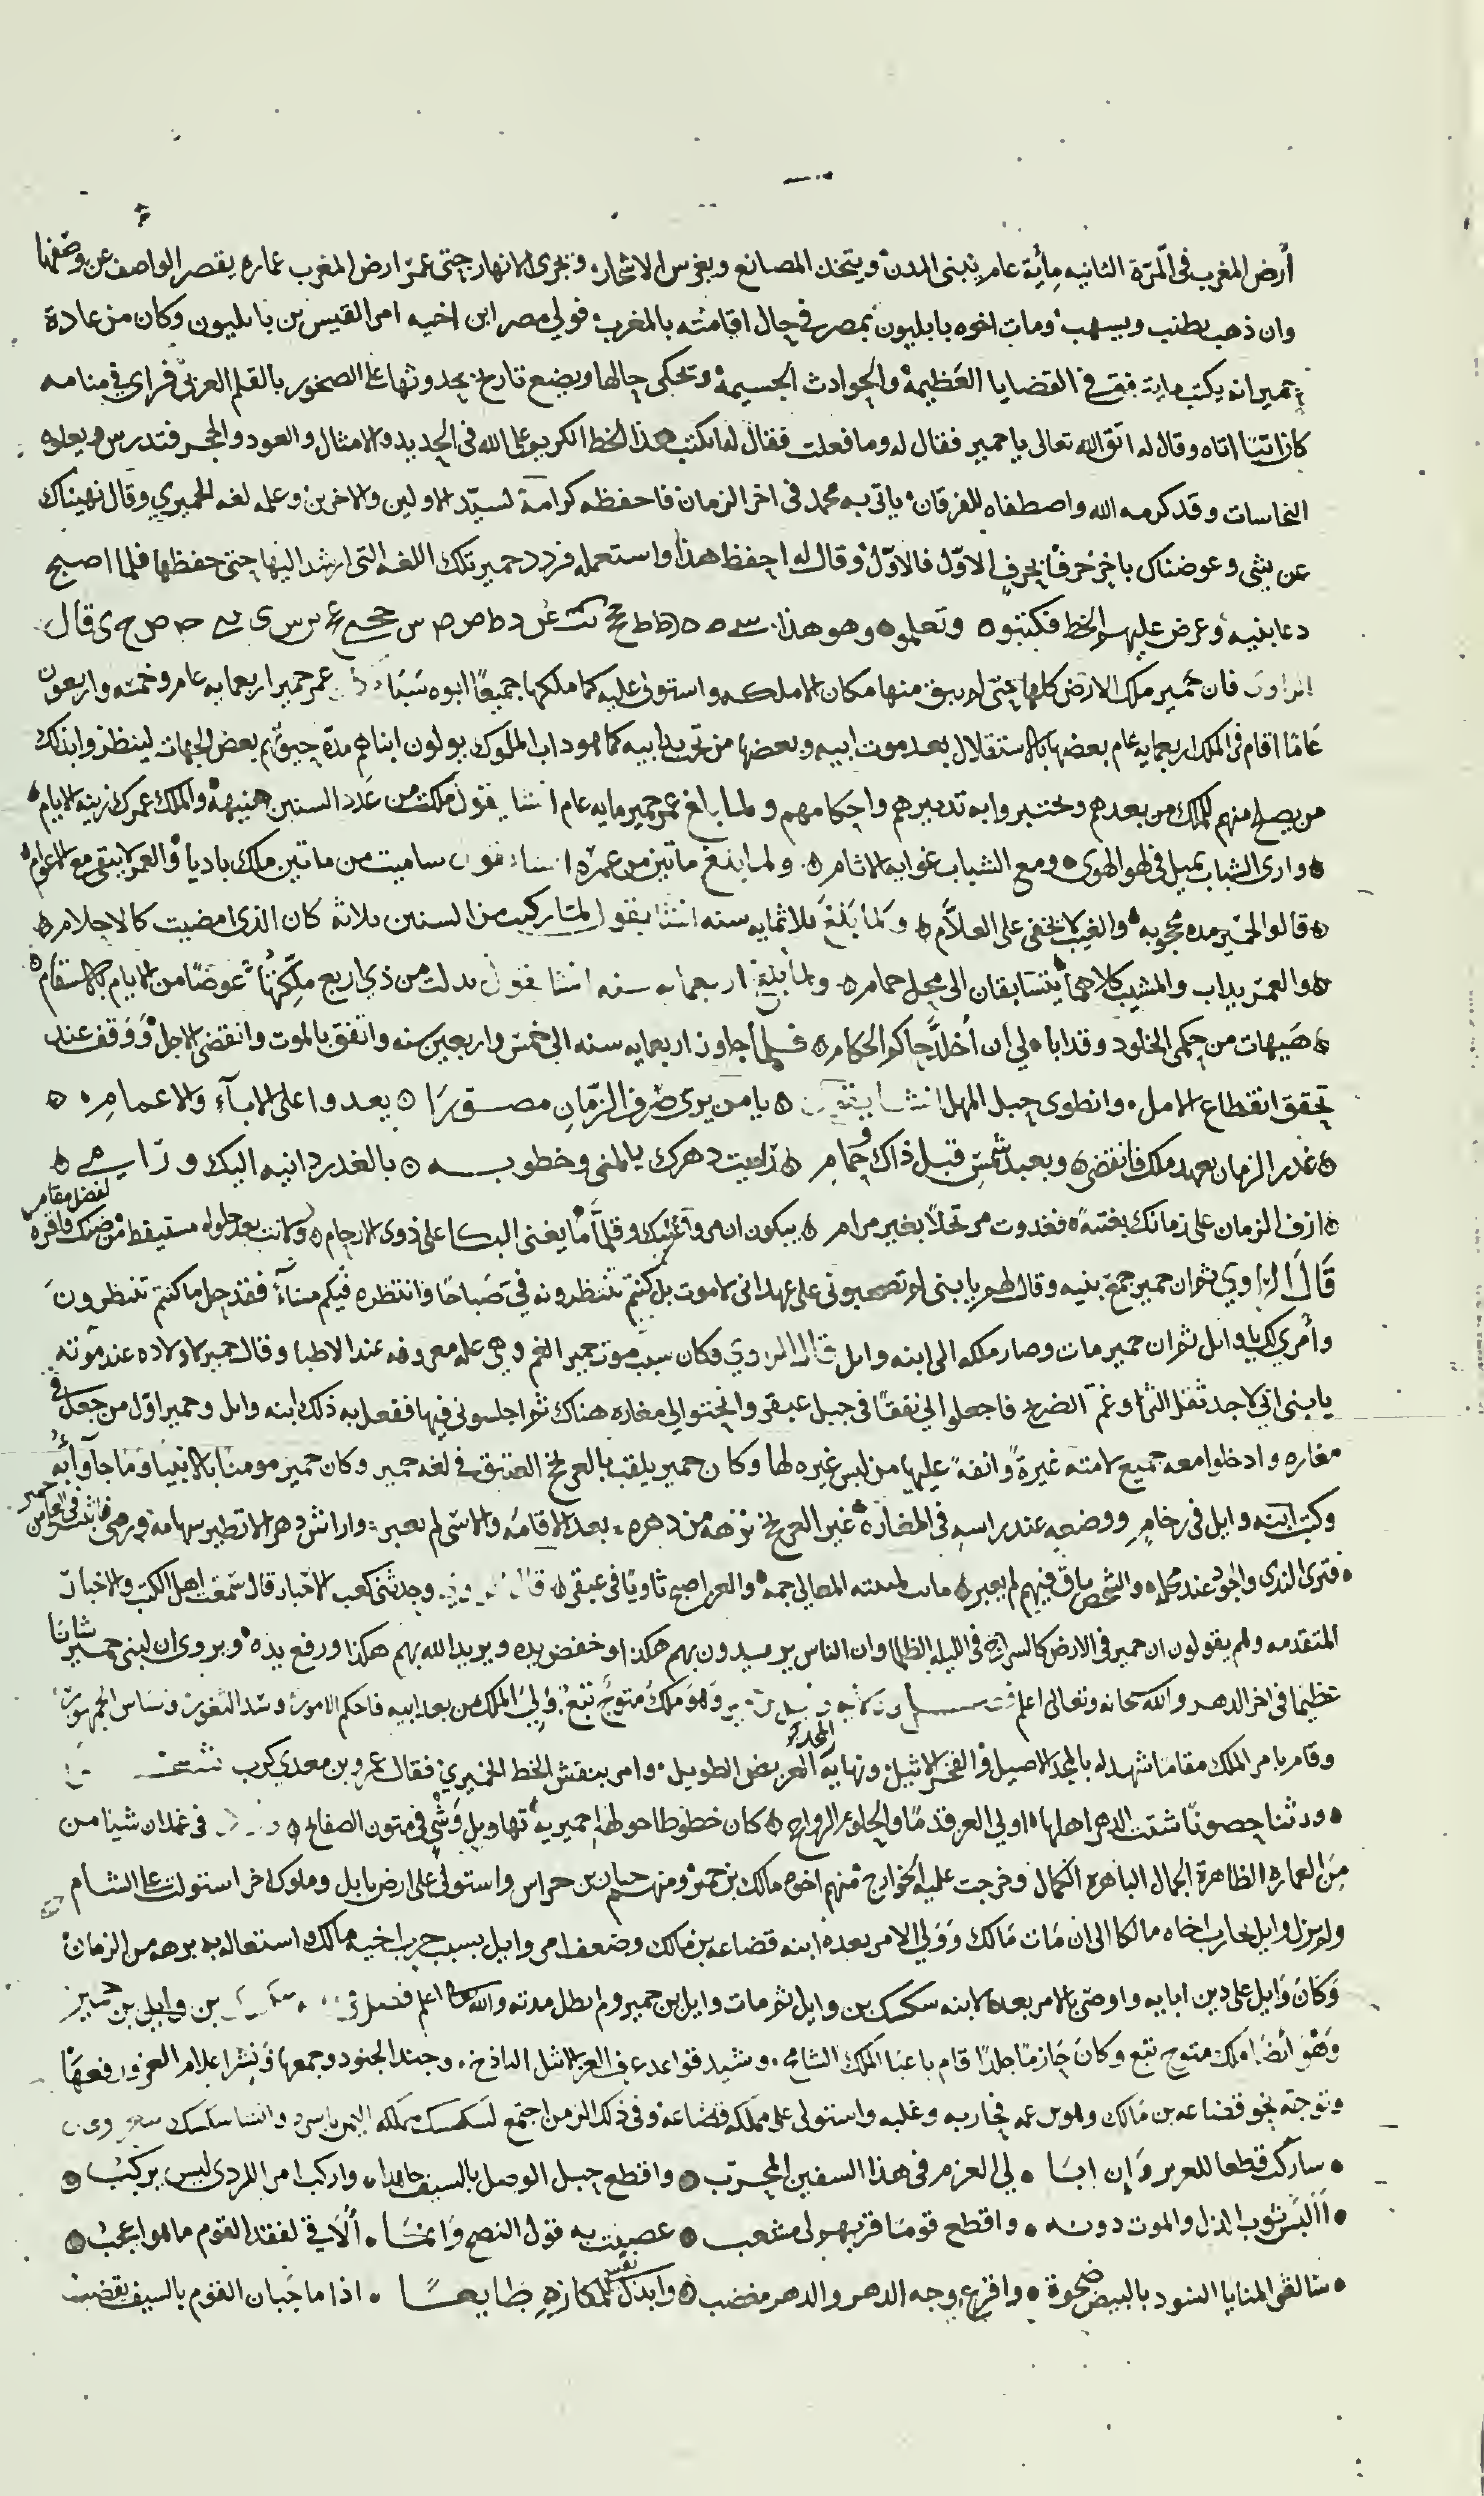 أرض المغرب فى المرّة الثانيه مأية عام يبنى المدن ويتخذ المصانع ويغرس الاشجار ويجرى الانهار حتى عمّر ارض المغرب عماره يقصر الواصف عن وصفها
وان ذهب يطنب ويسهب ومات اخوه بابليون بمصر فى حال اقامته بالمغرب فولي مصر ابن اخيه امر القيس بن بابليون وكان من عادة
حمير انه يكتب ما يتفق في القضايا العظيمة والحوادث الجسيمة وتحكى حالها ويضع تاريخ حدوثها على الصخور بالقلم العربي فراى في منامه
كان اتيا اتاه وقال له اتق الله تعالى يا حمير فقال له وما فعلت فقال له تكتب هذا الخط الكريم على الله فى الحديد والامثال والعود والحجر فتدرس ويعلوه
النجاسات وقد كرمه الله واصطفاه للفرقان ياتى به محمد فى اخر الزمان فاحفظه كرامة لسيّد الاولين والاخرين وعلمه لغه الحميري وقال نهيناك
عن شي وعوضناك باخر حرفا بحرف الاوّل فالاوّل وقال له احفظ هذا واستعمله فردد حمير تلك اللغه التى ارشد اليها حتى حفظها فلما اصبح
دعا بنيه وعرض عليهم الخط فكتبوه وتعلموه وهو هذا قال
الراوى فان حمير ملك الارض كلها حتى لم يبق منها مكان الا ملكه واستولى عليه كما ملكها جميعًا ابوه سبَا عمر حمير اربعمايه عام وخمسه واربعون
عامًا اقام فى الملك اربعمايه عام بعضها بالاستقلال بعد موت ابيه وبعضها من تحت يد ابيه كما هو داب الملوك يولون ابناهم مدّة حيوتهم بعض الجهات لينظروا بذلك
من يصلح منهم للملك من بعدهم وتختبر وابه تدبيرهم واحكامهم ولما بلغ عمر حمير مايه عام انشا يقول ملكت من عدد السنين هنيهة والملك عمرك زينة الايام
وارى الشباب يميل فى لهو الهوى ومع الشباب غوايه الاثام ولما بلغ مائتين من عمره انشاء يقول ساميت من مائتين ملك باديا والعمر لا يبقى مع الاعوام
قالوا لحمير مده محجوبه والغيب لا يخفى على العلاّم ولما بلغ ثلاثمايه سنه انشا يقول لما ركبت من السنين ثلاثة كان الذى امضيت كالاحلام
والعمر يداب والمشيب كلاهما يتسابقان الى محل حمام ولما بلغ اربعمايه سنه انشا يقول بدلت من ذي اربع ملكتها عوضًا من الايام بالاسقام
هيهات من حكمى الخلود وقد ابا لي ان أخلد حاكم الحكام فلما جاوز اربعمايه سنه الى خمس واربعين سنه واتفق بالموت وانقضى الاجل ووقف عند
تحقق انقطاع الامل وانطوى حبل المهل انشا يقول يا من يرى صرف الزّمان مصورًا بعدوا على الاباء والاعمام
غدر الزمان بعهد ملك فانقضى وبعبد شمس قبل ذاك وحمام زاهيت دهرك بالمنى وخطوبه بالغدر دانيه اليك ورامي
ازف الزمان على زمانك بغتة فغدوت مرتحلًا بغير مرام
قَالَ الراوي ثم ان حمير جمع بنيه وقال لهم يا بنى لم تصحبونى على عهد انى لا موت بل كنتم تنتظرونه فيّ صباحًا وانتظره فيكم مساءً فقد حل ما كنتم تنتظرون
وأمري اليك يا وايل ثم ان حمير مات وصار ملكه الى ابنه وايل قال الراوي فكان سبب موت حمير الغم وهي عله معروفه عند الاطبا وقال حمير لاولاده عند موته
يا بنى انى لاجد ثقل الثرا وغم الضريح فاجعلوا لى نفقًا فى جبل عبقر وانحتوا لى مغاره هناك ثم اجلسونى فيها ففعل به ذلك ابنه وايل وحمير اوّل من جعل في
مغاره وادخلوا معه جميع لامته غيرةً وانفةً عليها من لبس غيره لها وكان حمير يلقب بالعرنجج العتيق في لغه حمير وكان حمير مومنًا بالانبيا وما جاوا به
وكتب ابنه وايل فى رخام ووضعه عند راسه فى المغارة غبر العرنجج نزهه من دهره بعد الاقامه والاسى لم يعبر
فترى الندى والجود عند محله والشخص باق فيهم لم يعبر ماتت لميتته المعالي جمه والعز اصبح ثاويًا فى عبقر وحدثنى كعب الاحبار قال سمعت اهل الكتب والاخبار
المتقدمه ولم يقولون ان حمير فى الارض كالسراج فى الليله الظلما وان الناس يريدون بهم هكذا وخفض يده ويريد الله بهم هكذا ورفع يده ويروى ان لبنى حمير شانا
عظيما فى اخر الدهر والله سبحانه وتعالى اعلم وهو ملك متوّج تبّع ولي الملك من بعد ابيه فاحكم الامور وسد الثغور وساس الجمهور
وقام بامر الملك مقامًا شهد له بالمجد الاصيل والفخر الاثيل ونهايه المجد العريض الطويل وامر بنقش الخط الحميري فقال عمرو بن معدي كرب
ورثنا حصونًا شتت الدهر اهلها اولي العز قدمًا والحلوم الرواجح كان خطوطا حولها حميرية تهاويل وشي فى متون الصفائح فى غمدان شيئا من
من العماره الظاهرة الجمال الباهرة الكمال وخرجت عليه الخوارج منهم اخوه مالك بن حمير ومنهم واستولى على ارض بابل وملوك اخر استولت على الشام
ولم يزل وايل يحارب اخاه مالكا الى ان مات مالك وولي الامر بعده ابنه قضاعه بن مالك وضعف امر وايل بسبب حرب اخيه مالك واستعاله به برهه من الزمان
وكان وايل على دين ابايه واوصى بالامر بعده لابنه سكسك بن وايل ثم مات وايل بن حمير ولم تطل مدته والله اعلم فصل بن وايل بن حمير
وهو ايضا ملك متوج تبع وكان حازمًا جلدًا قام باعبا الملك الشامخ وشيد قواعده فى العز الاثيل الباذخ وجند الجنود وجمعها ونشر اعلام العز ورفعها
وتوجه نحو قضاعه بن مالك وهو بن عمه فحاربه وغلبه واستولى على مملكه قضاعه وفى ذلك الزمن اجتمع لسكسك مملكه اليمن باسره
ساركب قطعا للعرير وإن ابا لي العزم فى هذا السفين المجرب واقطع حبل الوصل بالسيف جاهدا واركب امرا للردى ليس يركب
أالبس ثوب الذل والموت دونه واقطع قومًا قربهم لى مشعب عصيت به قول النصح ألا في لفقد القوم ما هو اعجب
سالقى المنايا السود بالبيض ضحوة واقرع وجه الدهر والدهر مغضب وابذل نفس للمكاره طايعًا اذا ما جبان القوم بالسيف يقضب